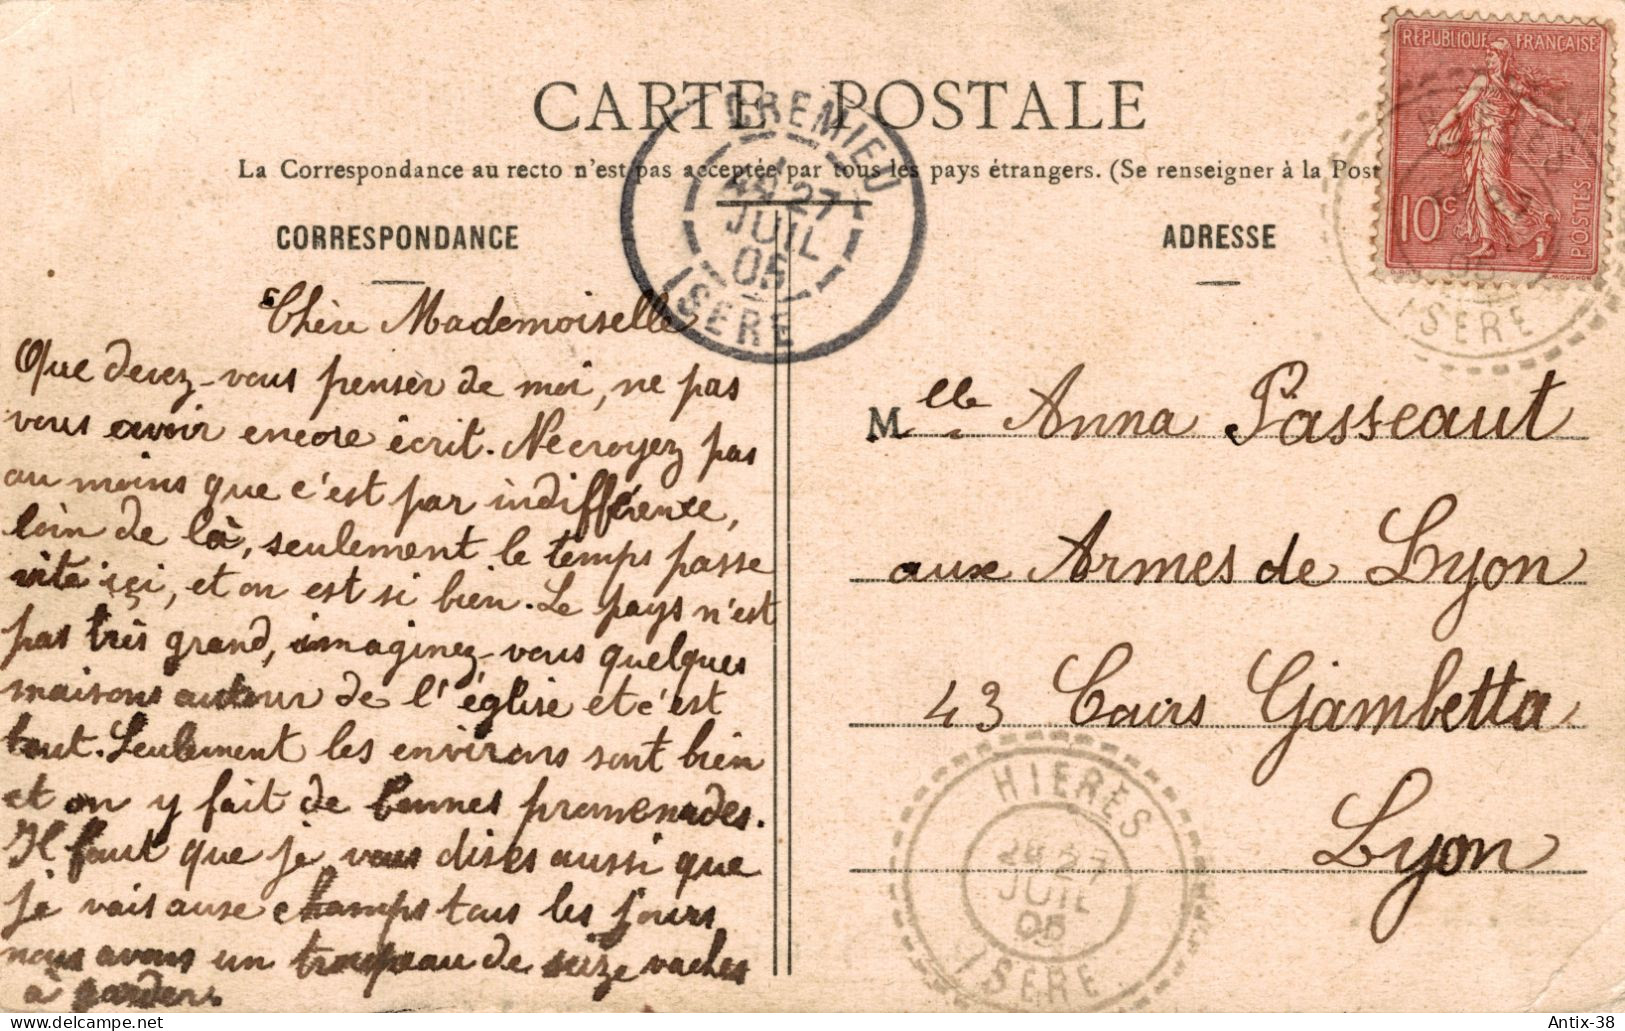 CARTE POSTALE
La Correspondance au recto n'est pas acceptée par tous les pays étrangers. (Se renseigner à la Post
CORRESPONDANCE
ADRESSE
REPUBLIQUE FRANÇAISE
10 c
POSTES
MOUCHON
ISERE
CREMIEU
27
JUIL
05
ISERE
Chère Mademoiselle
Que devez-vous penser de moi, ne pas
vous avoir encore écrit. Ne croyez pas
au moins que c'est par indifférence,
loin de là, seulement le temps passe
vite içi, et on est si bien. Le pays n'est
pas très grand, imaginez-vous quelques
maisons autour de l'église et c'est
tout. Seulement les environs sont bien
et on y fait de bonnes promenades.
Il faut que je vous dises aussi que
je vais aux champs tous les jours,
nous avons un troupeau de seize vaches
à garder.
Mlle Anna Passeaut
aux Armes de Lyon
43 Cours Gambetta,
Lyon
HIERES
27
JUIL
05
ISERE
Antix-38